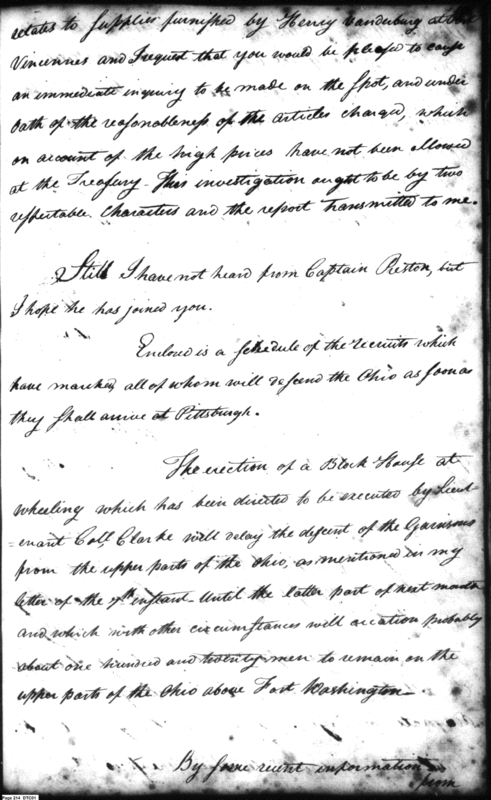 relates to supplies furnished by Henry Vanderburg at Post
Vincennes and I request that you would be pleased to cause
an immediate inquiry to be made on the spot, and under
Oath of the reasonableness of the articles charged, which
on account of the high prices have not been allowed
at the Treasury. This investigation ought to be by two
respectable Characters and the report transmitted to me.
Still I have not heard from Captain Preston, but
I hope he has joined you.
Enclosed is a schedule of the recruits which
have marched, all of whom will descend the Ohio as soon as
they shall arrive at Pittsburgh.
The erection of a Block House at
Wheeling which has been directed to be executed by Lieut-
=enant Coll. Clarke will delay the descent of the Garrisons
from the upper parts of the Ohio, as mentioned in my
letter of the 7th instant Until the latter part of next month
and which with other circumstances will occation probably
about one hundred and twenty men to remain on the
upper parts of the Ohio above Fort Washington.
By some recent information
from
Page 214 DTC01